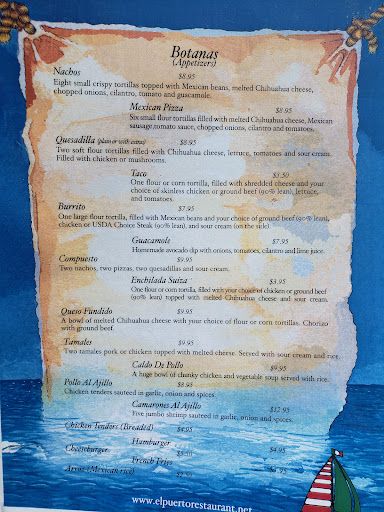 Botanas
(Appetizers)
Nachos
$8.95
Eight small crispy tortillas topped with Mexican beans, melted Chihuahua cheese,
chopped onions, cilantro, tomato and guacamole.
Mexican Pizza
$8.95
Six small flour tortillas filled with melted Chihuahua cheese, Mexican
sausage, tomato sauce, chopped onions, cilantro and tomatoes.
Quesadilla (plain or with extras) $8.95
Two soft flour tortillas filled with Chihuahua cheese, lettuce, tomatoes and sour cream.
Filled with chicken or mushrooms.
Taco
$3.50
One flour or corn tortilla, filled with shredded cheese and your
choice of skinless chicken or ground beef (90% lean), lettuce,
and tomatoes.
Burrito
$7.95
One large flour tortilla, filled with Mexican beans and your choice of ground beef (90% lean),
chicken or USDA Choice Steak (90% lean), and sour cream (on the side)
Guacamole
$7.95
Homemade avocado dip with onions, tomatoes, cilantro and lime juice.
Compuesto
$9.95
Two nachos, two pizzas, two quesadillas and sour cream.
Enchilada Suiza
$3.95
One flour or corn tortilla, filled with your choice of chicken or ground beef
(90% lean) topped with melted Chihuahua cheese and sour cream.
Queso Fundido
$9.95
A bowl of melted Chihuahua cheese with your choice of flour or corn tortillas. Chorizo
with ground beef.
Tamales
$9.95
Two tamales pork or chicken topped with melted cheese. Served with sour cream and rice.
Caldo De Pollo
$9.95
A huge bowl of chunky chicken and vegetable soup served with rice.
Pollo Al Ajillo
$8.95
Chicken tenders sauteed in garlic, onion and spices.
Camarones Al Ajillo
$12.95
Five jumbo shrimp sauteed in garlic, onion and spices.
Chicken Tenders (Breaded) $4.95
Hamburger
$4.95
Cheeseburger
$5.50
French Fries
Arroz (Mexican rice)
www.elpuertorestaurant.net